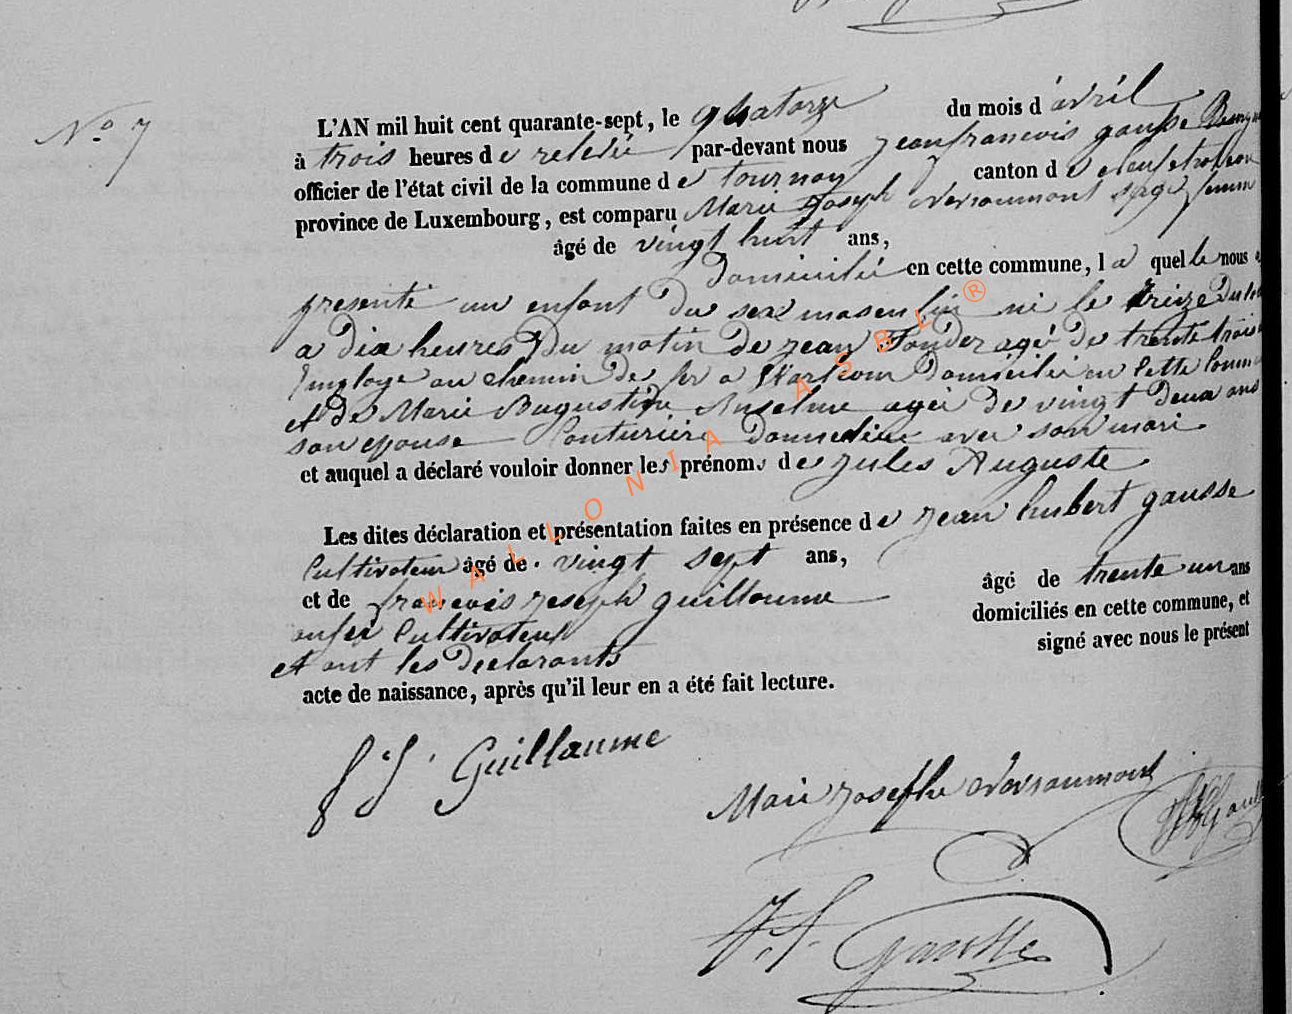 N° 7
L'AN mil huit cent quarante-sept, le quatorze du mois d'avril
à trois heures de relevée par-devant nous jean francois gausse
officier de l'état civil de la commune de tournay canton de
province de Luxembourg, est comparu Marie Joseph sage femme
âgé de vingt huit ans,
domiciliée en cette commune, la quelle nous a
presenté un enfant du sex masculin né le treize du
a dix heures du matin de jean Fonder agé de trente trois
Employe au chemin de fer a domicilié en cette
et de Marie Augustine Anselme agée de vingt deux ans
son epouse Couturière avec son mari
et auquel a déclaré vouloir donner les prénoms de jules Auguste
Les dites déclaration et présentation faites en présence de jean hubert gausse
Cultivateur âgé de vingt sept ans,
et de francois joseph guillaume âgé de trente un ans
aussi Cultivateur domiciliés en cette commune, et
et ont les declarants signé avec nous le présent
acte de naissance, après qu'il leur en a été fait lecture.
f J Guillaume
Marie josephe
J. f. gausse
WALLONIA ASBL ®